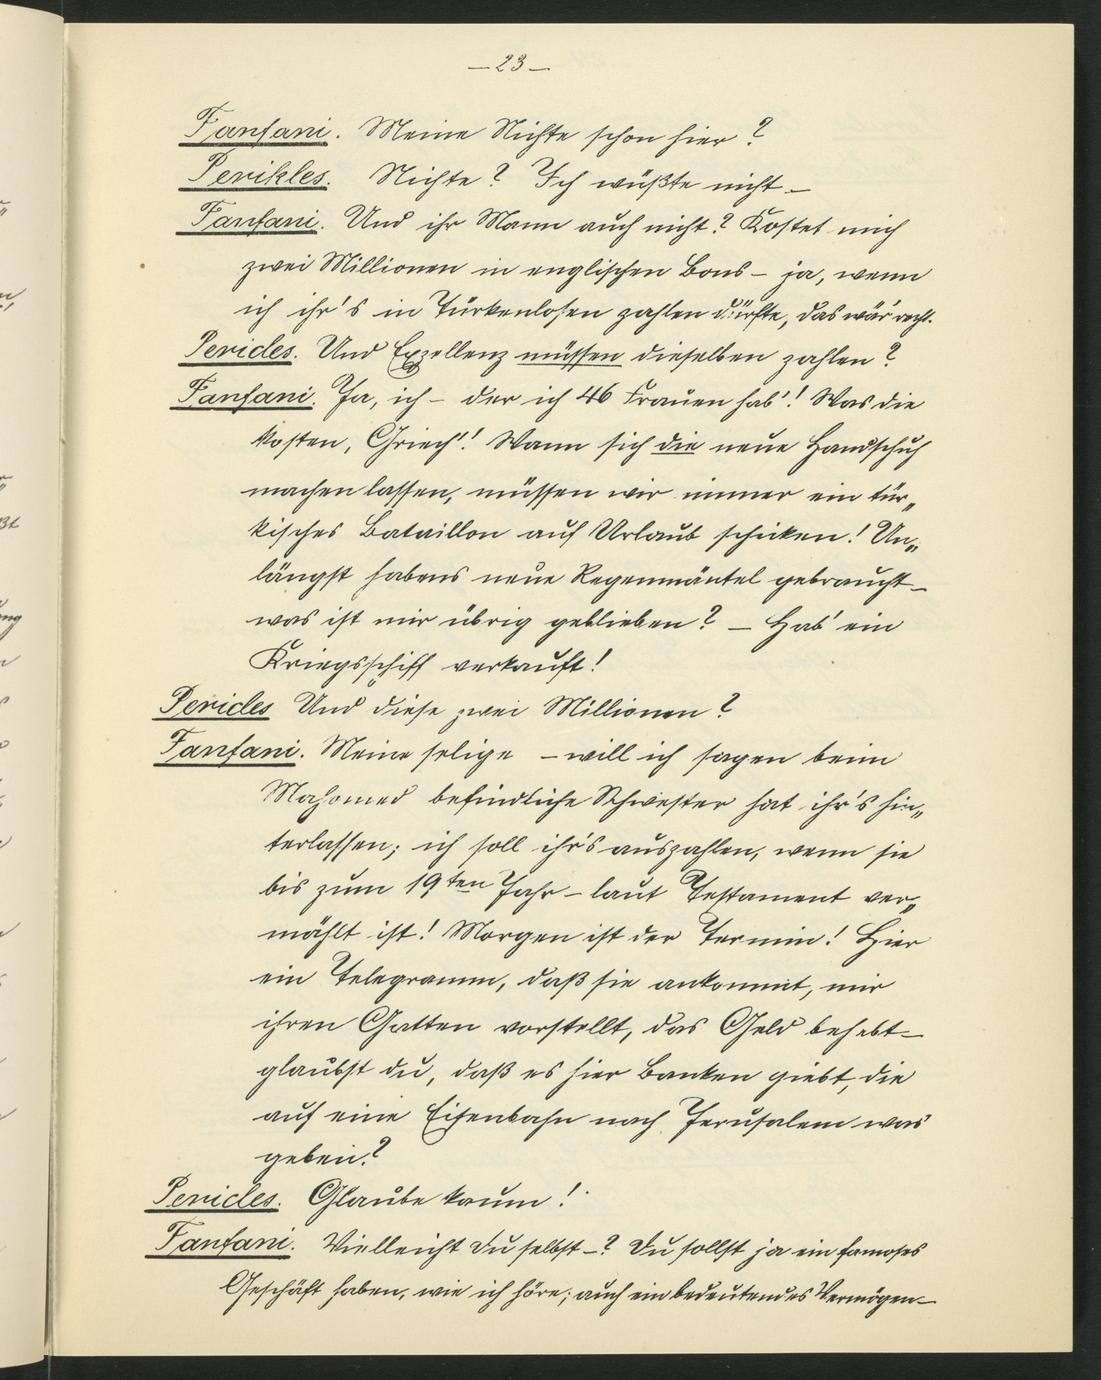 — 23 —
Fanfani. Meine Nichte schon hier?
Perikles. Nichte? Ich wüßte nicht —
Fanfani. Und ihr Mann auch nicht? Kostet mich
zwei Millionen in englischen Bons — ja, wenn
ich ihr's in Türkenlosen zahlen dürfte, das wär' recht.
Pericles. Und Exzellenz müssen dieselben zahlen?
Fanfani. Ja, ich — der ich 46 Frauen hab'! Was die
kosten, Griech'! Wann sich die neue Handschuh
machen lassen, müssen wir immer ein tür„
kisches Bataillon auf Urlaub schicken! Un„
längst habens neue Regenmäntel gebraucht —
was ist mir übrig geblieben? — Hab' ein
Kriegsschiff verkauft!
Pericles Und diese zwei Millionen?
Fanfani. Meine selige — will ich sagen beim
Mahomed befindliche Schwester hat ihr's hin„
terlassen; ich soll ihr's auszahlen, wenn sie
bis zum 19ten Jahr — laut Testament ver„
mählt ist! Morgen ist der Termin! Hier
ein Telegramm, daß sie ankommt, mir
ihren Gatten vorstellt, das Geld behebt —
glaubst du, daß es hier Banken giebt, die
auf eine Eisenbahn nach Jerusalem was
geben?
Pericles. Glaube kaum!
Fanfani. Vielleicht du selbst —? Du sollst ja ein famoses
Geschäft haben, wie ich höre; auch ein bedeutendes Vermögen —